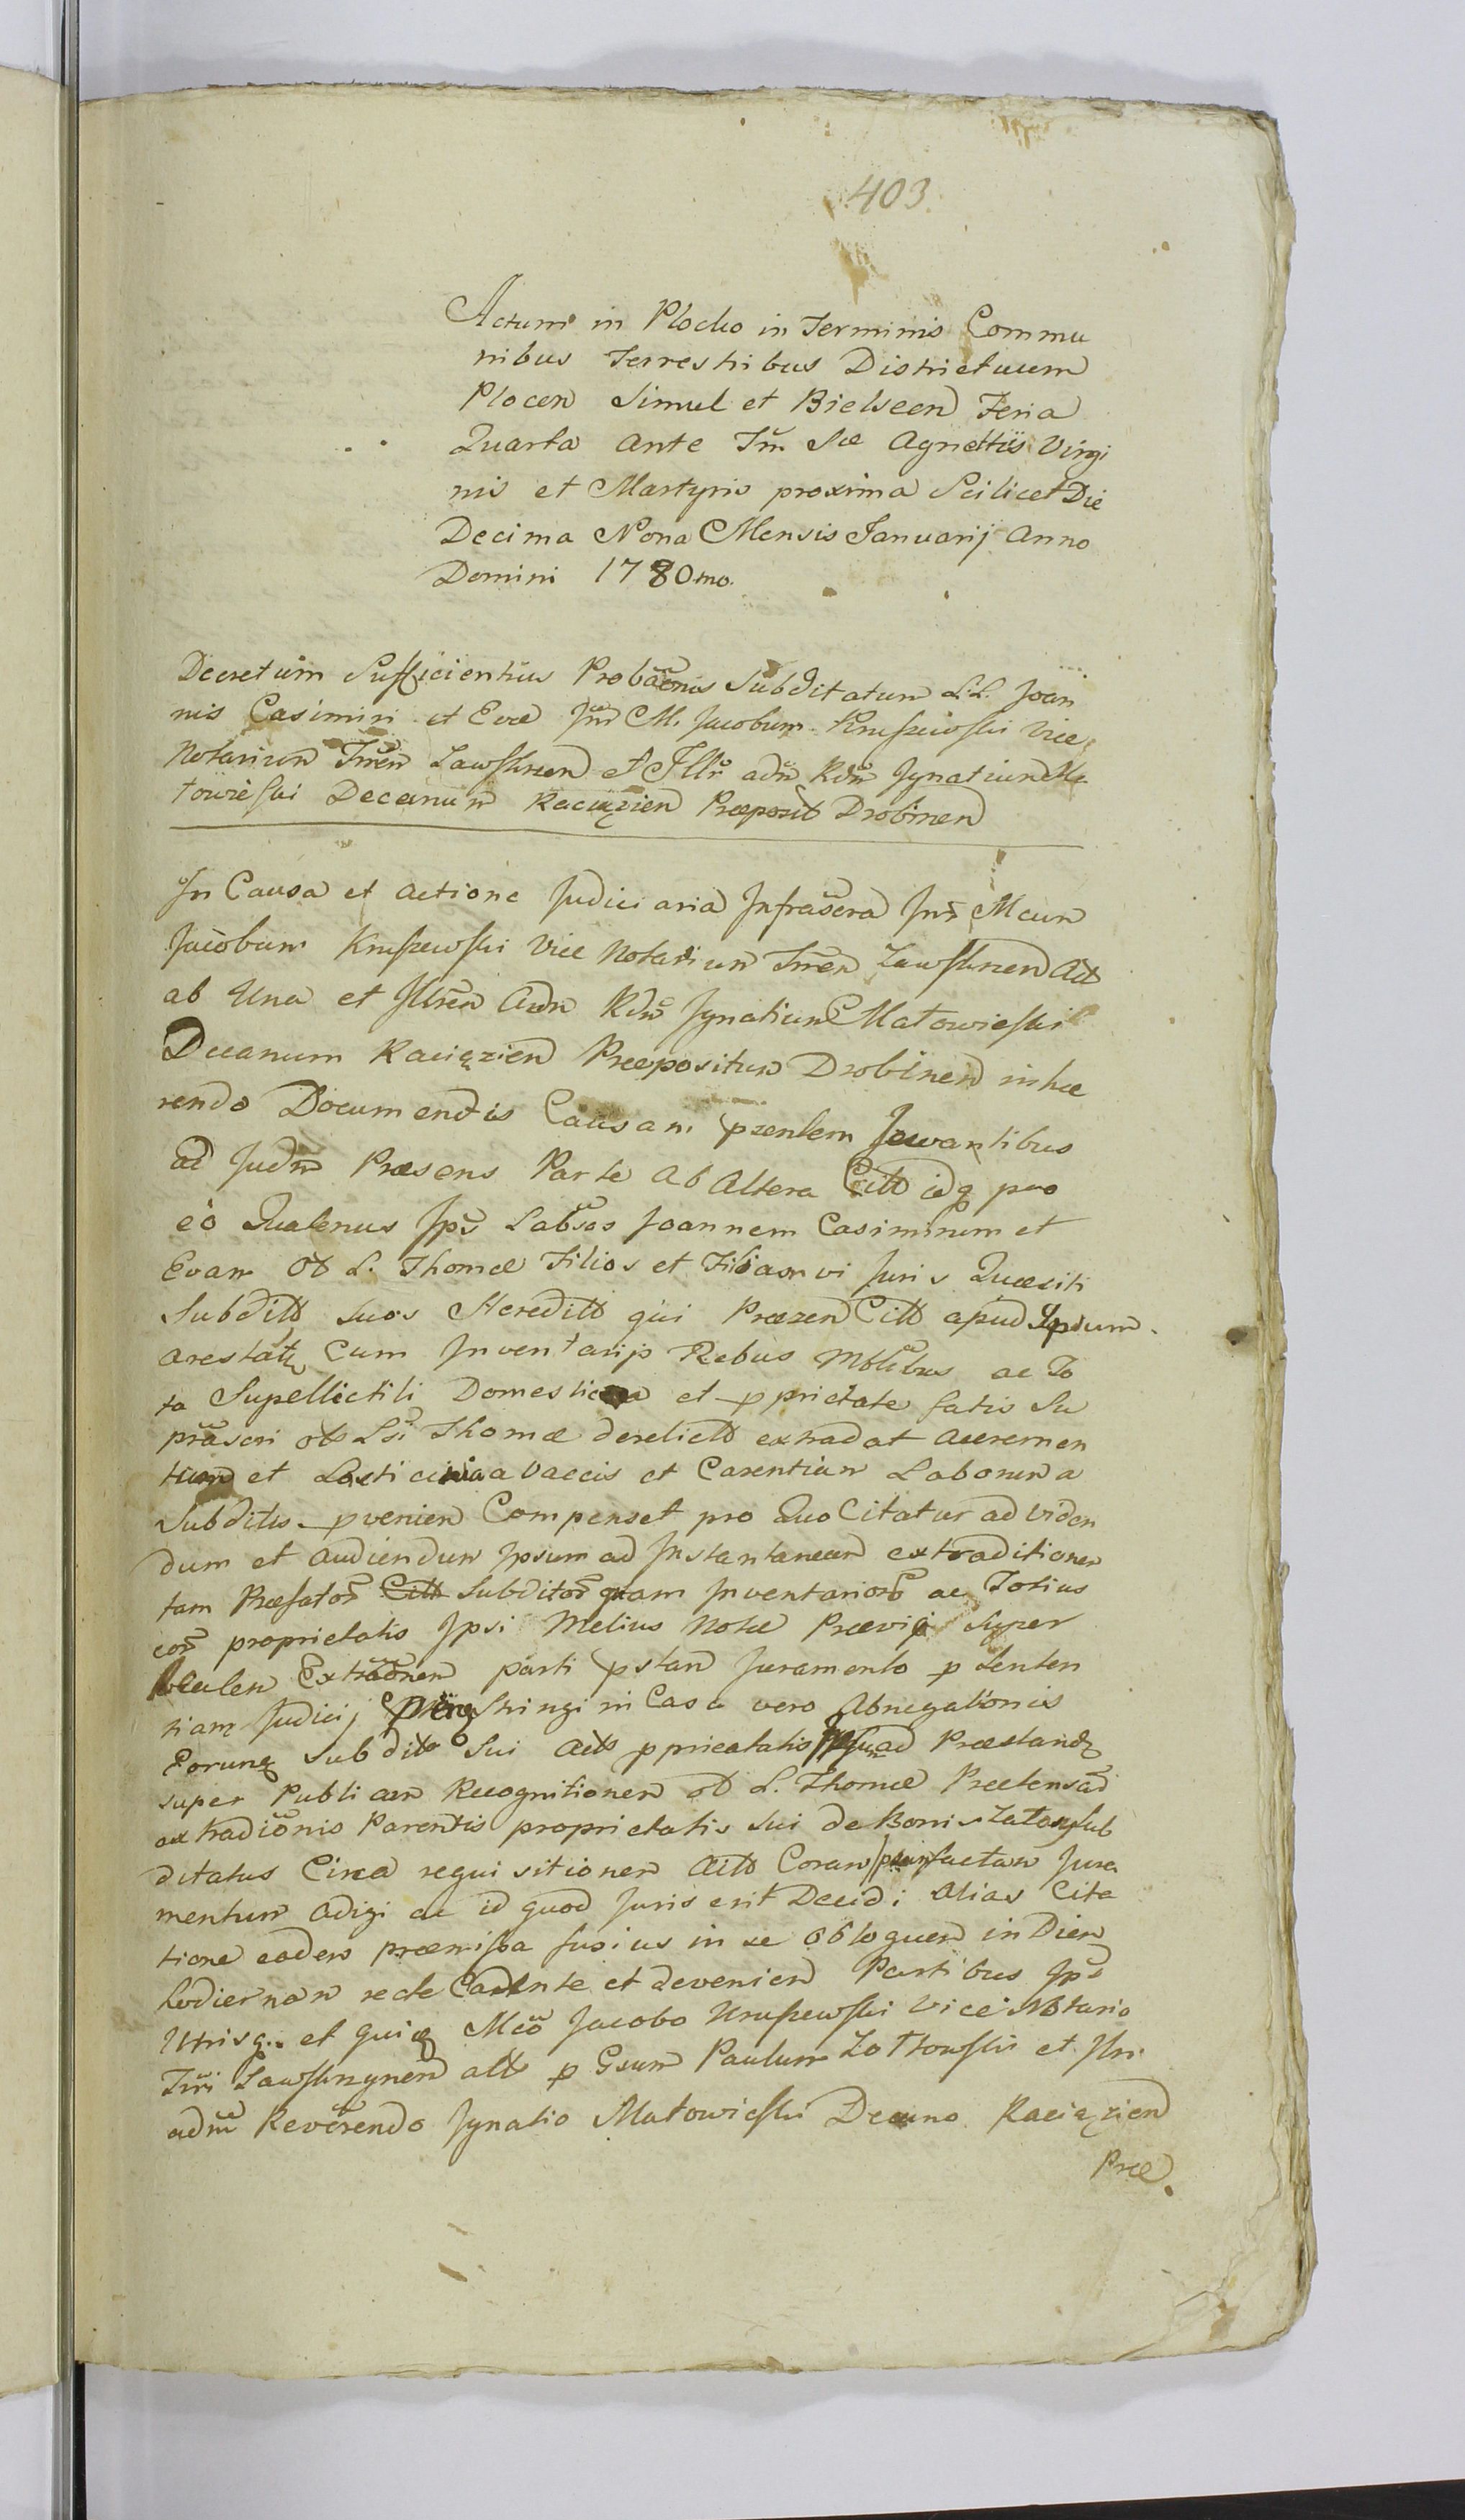 403.
Actum in Plocko in Terminis Commu
nibus Terrestribus Districtuum
Plocen Simul et Bielscen Feria
Quarta ante Fm Sce Agnettis Virgi
nis et Martyris proxima Scilicet Die
Decima Nona Mensis Januarij Anno
Domini 1780.mo.
Decretum Sufficientius Probaonis Subditatum LL. Joan
nis Casimiri et Evæ Jnr M. Jacobum Kruszewski Vice
Notarium Trren Zawskrzen et Illr adm Rdm Ignatium Ma
towieski Decanum Raciązien Præposit Drobinen
In Causa et actione Judiciaria Infrascra Jnr Mcum
Jacobum Kruszewski Vice Notarium Trren Zawskrzen Act
ab Una et Illren Adm Rdm Ignatium Matowieski
Decanum Raciązien Præpositum Drobinen inhæ
rendo Documentis Causam pzentem Juvantibus
ad Judm Præsens Parte ab Altera Citt idq pro
eo Quatenus Ips Labsos Joannem Casimirum et
Evam Ol L. Thomæ Filios et Filiam vi Juris Quæsiti
Subditt suos Hereditt qui Præzen Citt apud Ipsum
arestatt Cum Inventarijs Rebus Mblibus ac To
ta Supellictili Domestica et pprietate fatis Su
prascri ol Lsi Thomæ derelict extradat accremen
tum et Lacticinia a Vaccis et Carentiam Laborum a
Subditis pvenien Compenset pro Quo Citatur ad Viden
dum et audiendum Ipsum ad Instantaneam extraditionem
tam Præfator Subditor quam Inventarior ac Totius
eor proprietatis Ipsi Melius Notæ Prævio Super
talem Extraonem parti pstan Juramento p Senten
tiam Judicij stringi in Casu vero Abnegationis
Eorunq Subdit Sui Act pprietatis ad Præstand
super Publicam Recognitionem ol L. Thomæ Prætensæ
extradionis Parentis proprietatis Sui de Bonis Sub
ditatus Circa requisitionem Act Coram factam Jura
mentum adigi ac id quod Juris erit Decidi alias Cita
tione eadem præmissa fusius in se obloquen in Diem
hodiernam recte Cadente et devenien Partibus Ips
Utrisq. et quidq Mco Jacobo Kruszewski Vice Notario
Trri Zawskrzynen act p Gsum Paulum Zottowski et Illri
adm Reverendo Ignatio Matowieski Decano Raciązien
Præ.